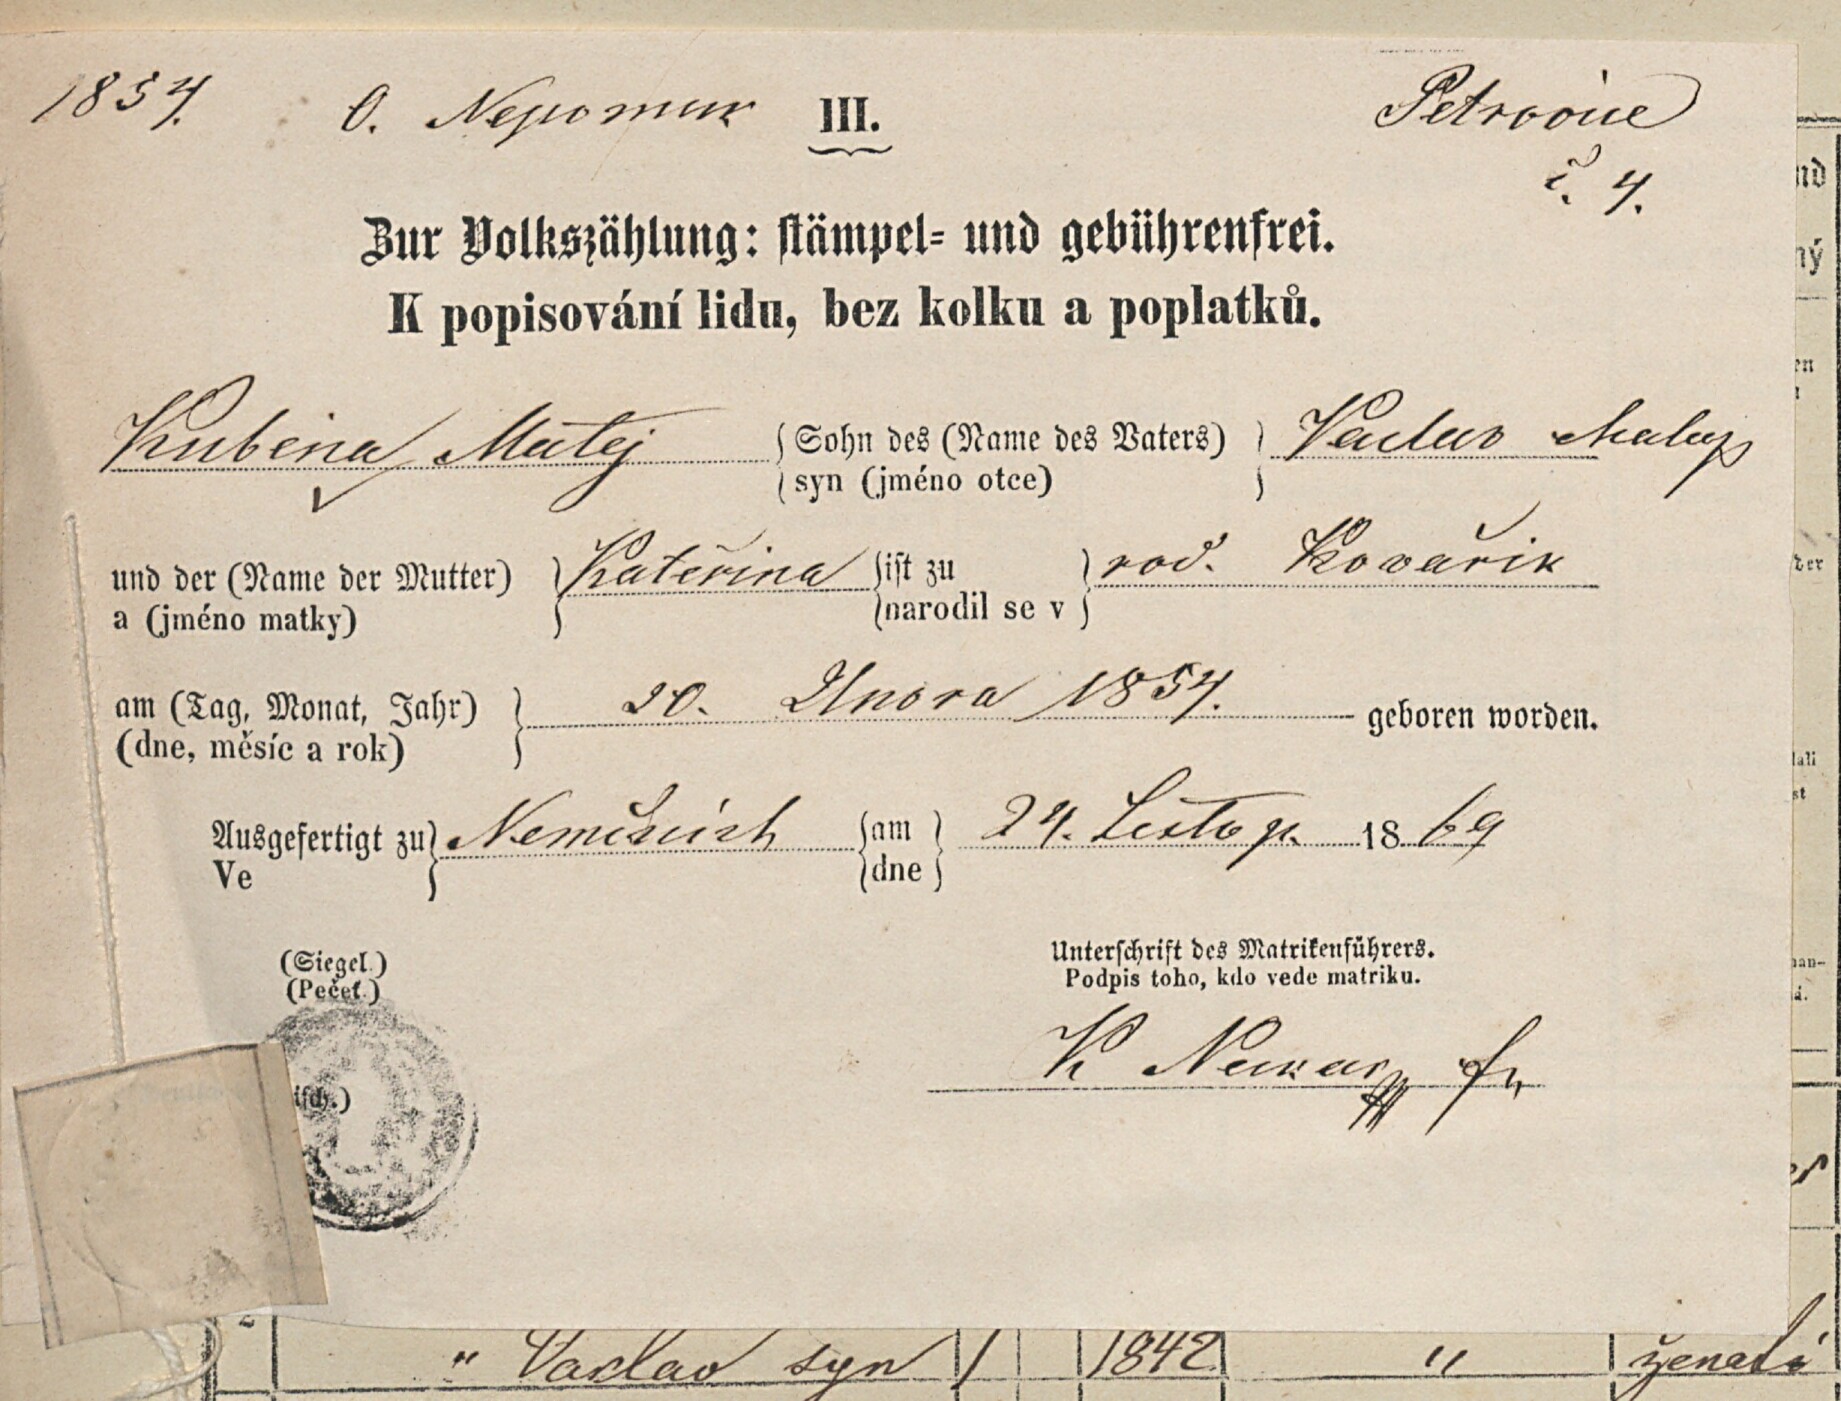 1854. O. Nepomuk III. Petrovice
č. 4.
Zur Volkszählung: stämpel- und gebührenfrei.
K popisování lidu, bez kolku a poplatků.
Kubena Matej Sohn des (Name des Vaters) Vaclav
syn (jméno otce)
und der (Name der Mutter) Kateřina ist zu rod. Kovařik
a (jméno matky) narodil se v
am (Tag, Monat, Jahr) 20. Unora 1854. geboren worden.
(dne, měsíc a rok)
Ausgefertigt zu Nemčicich am 24. Listop. 1869
Ve dne
(Siegel.) Unterschrift des Matrikenführers.
(Pečeť.) Podpis toho, kdo vede matriku.
K
" Vaclav syn 1 1842 " ženatí